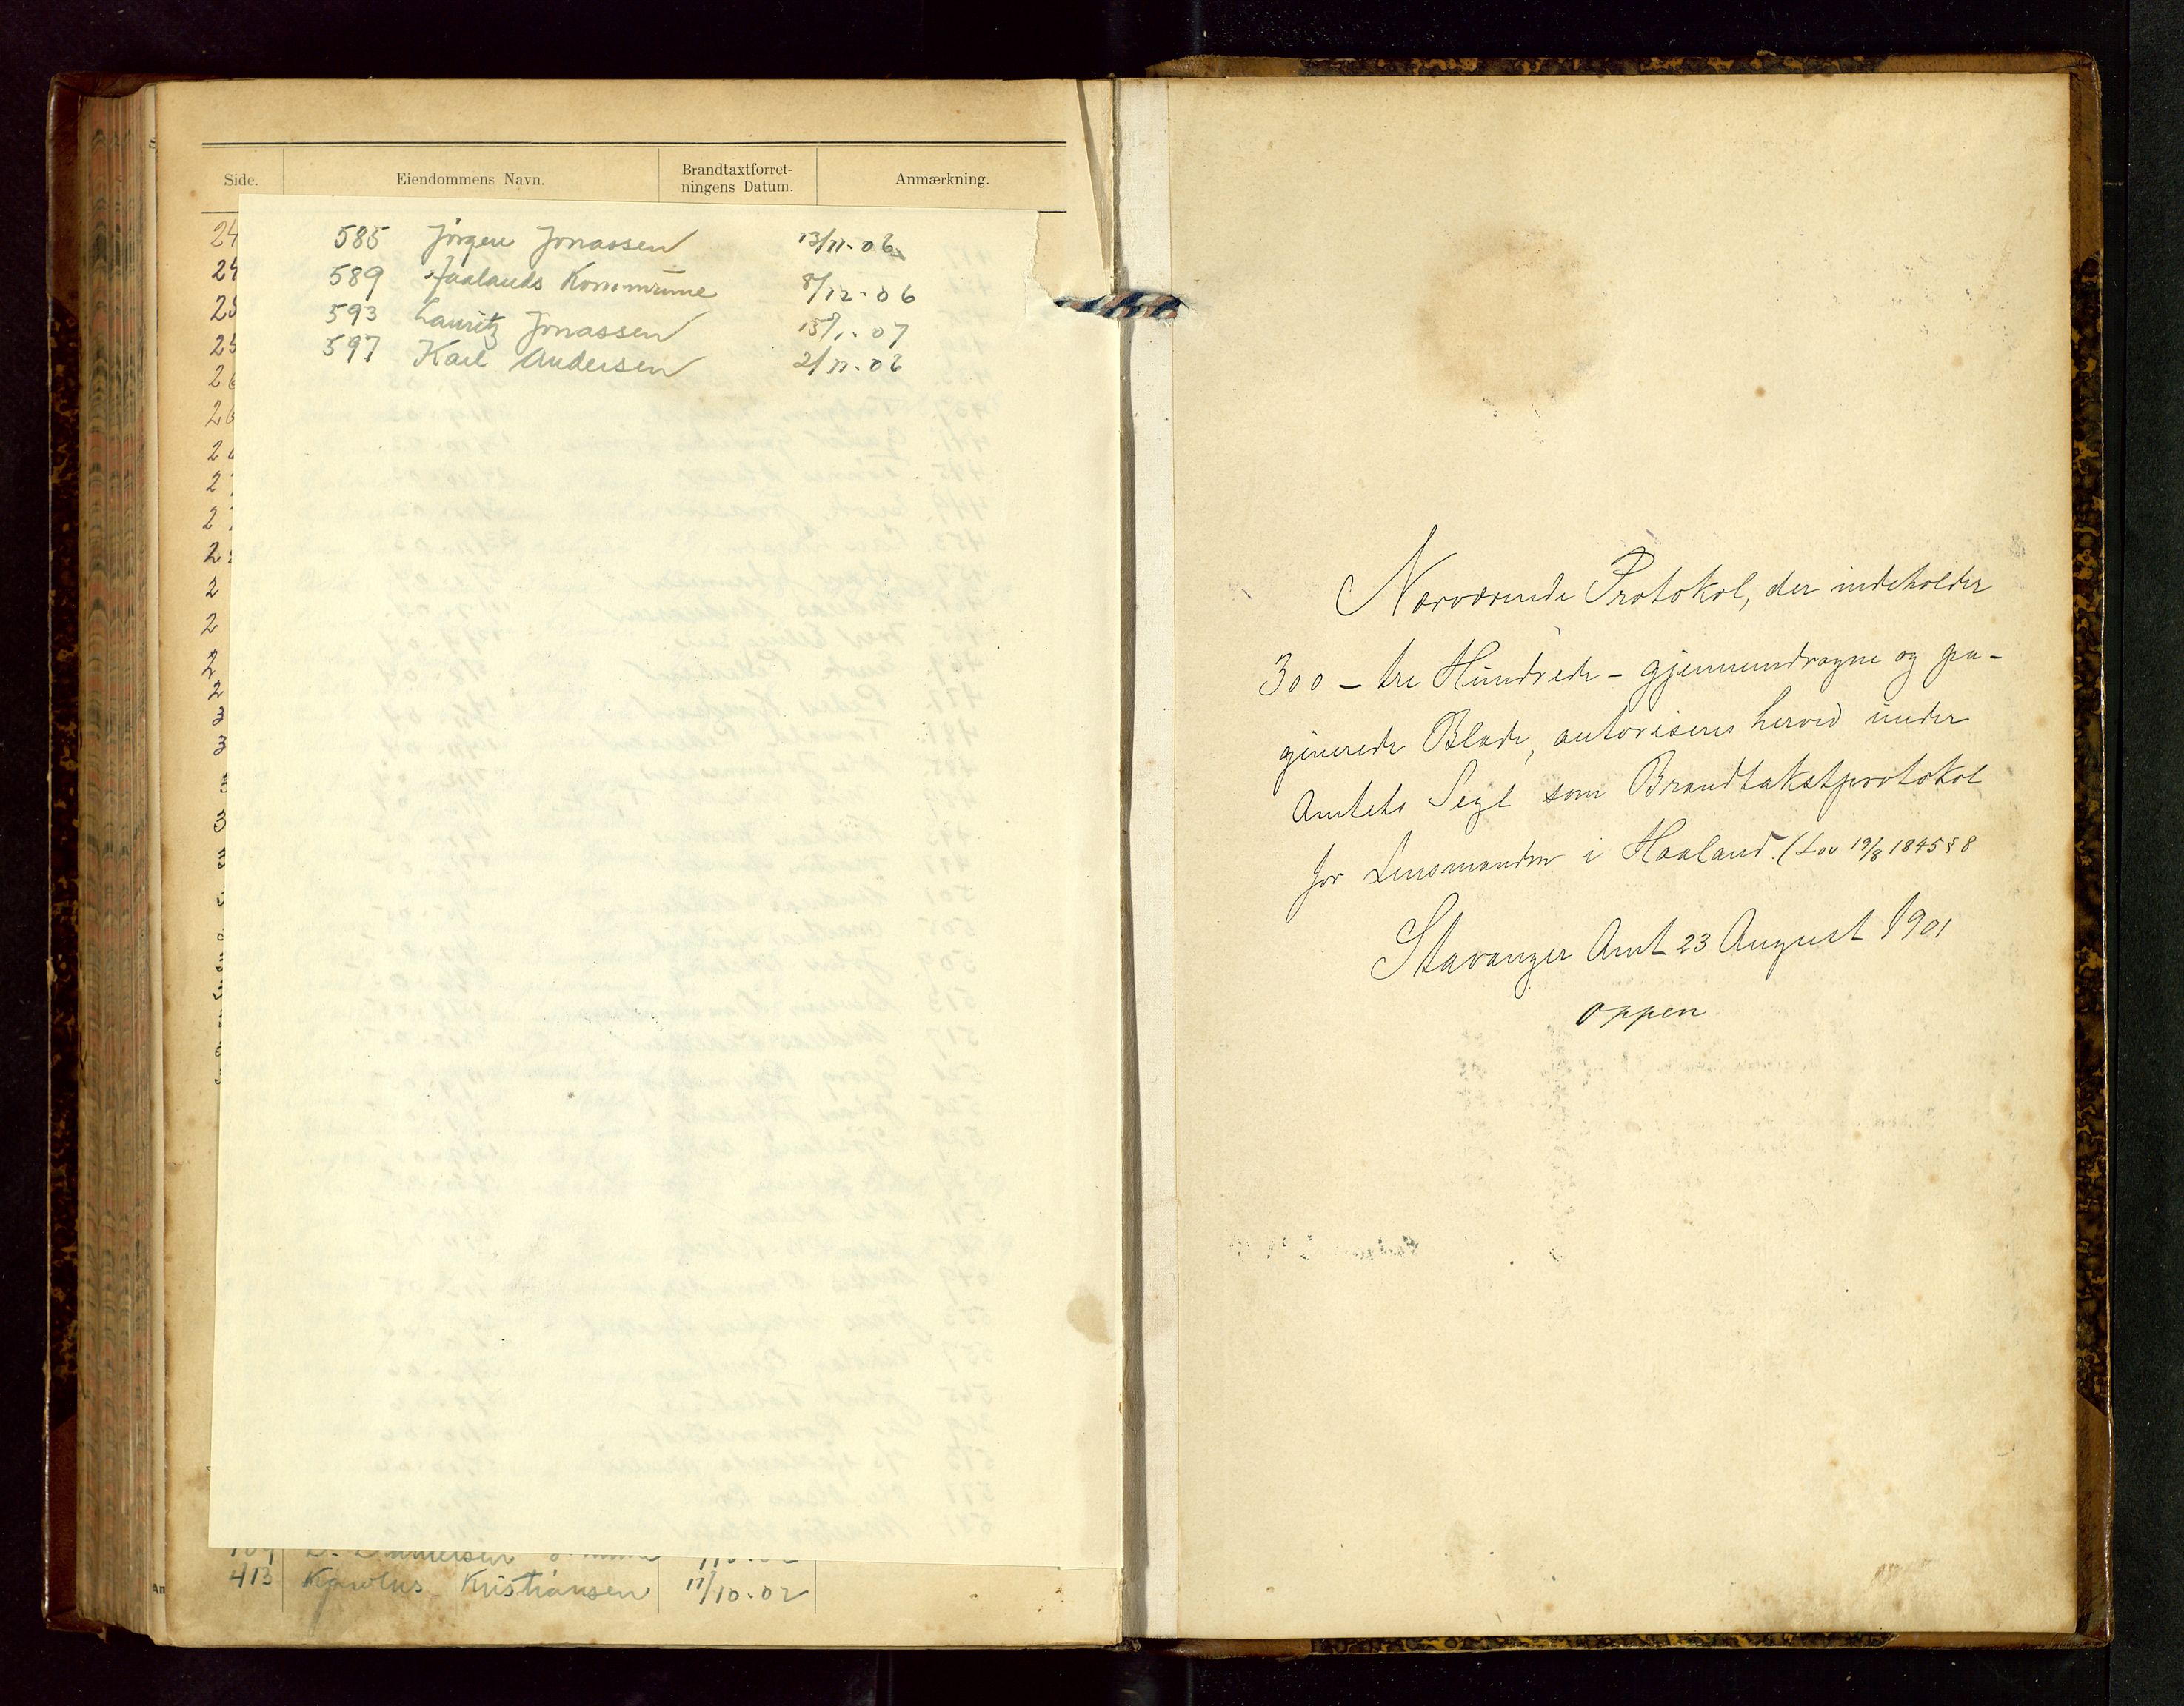 Side. Eiendommens Navn. Brandtaxtforret-
ningens Datum. Anmærkning.
585 Jörgen Jonassen 13/11-06
589 Haalands Kommune 8/12-06
593 Lauritz Jonassen 15/1-07
597 Karl Andersen 2/11-06
413 Karolus Kristiansen 11/10-02
Nærværende Protokol, der indeholder
300 - tre Hundrede - gjennemdragne og pa-
ginerede Blade, autoriseres herved under
Amtets Segl som Brandtakstprotokol
for Lensmanden i Haaland. (Lov 19/8 1845 § 8
Stavanger Amt 23 August 1901
Oppen